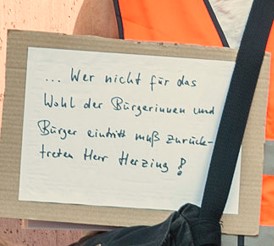 ... Wer nicht für das
Wohl der Bürgerinnen und
Bürger eintritt muß zurück-
treten Herr Herzing!